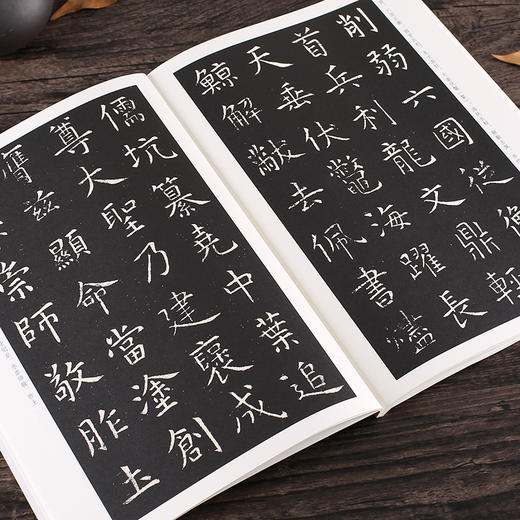 削弱六國從
首兵利龍文鼎輕
天垂伏鼈海躍長
鯨解黻去佩書燼
儒坑纂堯中葉追
尊大聖乃建褒成
膺茲顯命當塗創
崇師敬胙土